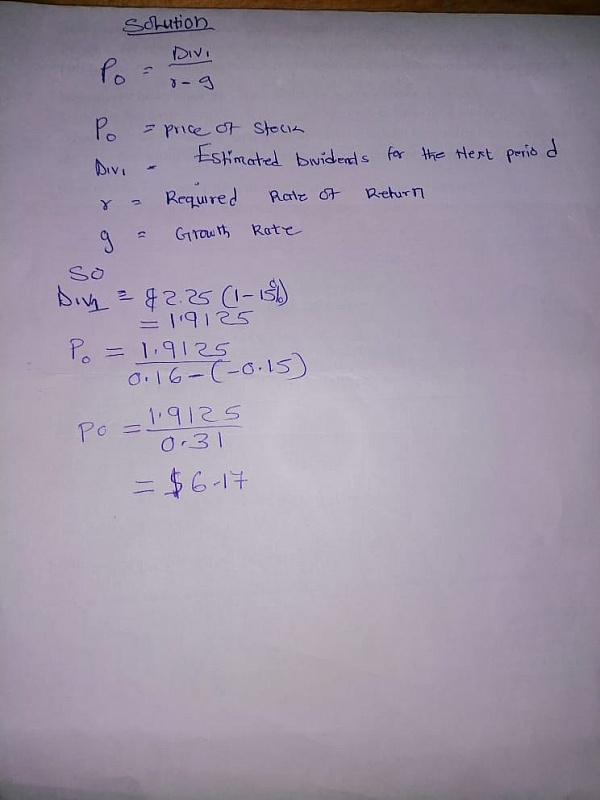 Solution
P₀ = Div₁ / r - g
P₀ = price of Stock
Div₁ = Estimated Dividends for the Next period
r = Required Rate of Return
g = Growth Rate
So
Div₁ = $2.25 (1-15%)
= 1.9125
P₀ = 1.9125 / 0.16-(-0.15)
P₀ = 1.9125 / 0.31
= $6.17